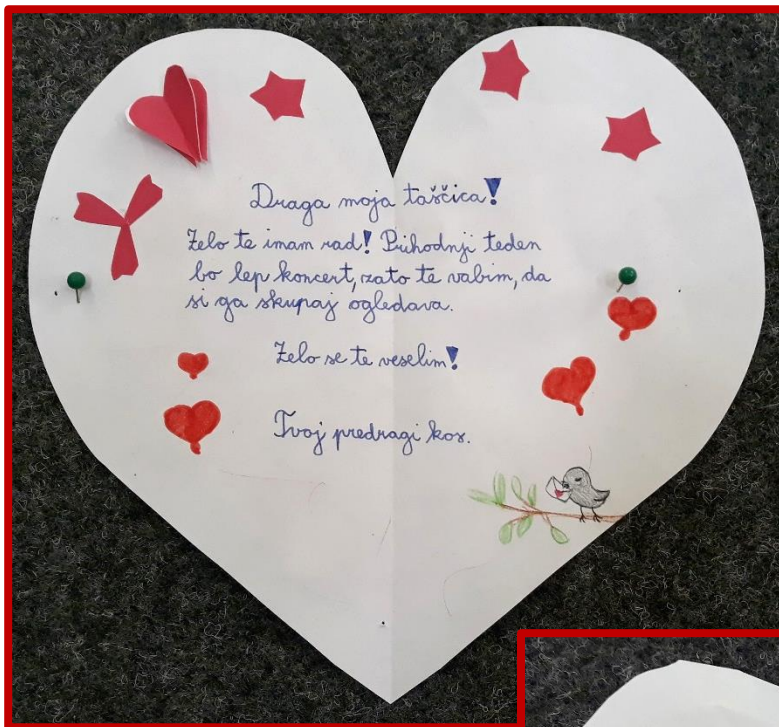 Draga moja taščica!
Zelo te imam rad! Prihodnji teden
bo lep koncert, zato te vabim, da
si ga skupaj ogledava.
Zelo se te veselim!
Tvoj predragi kos.